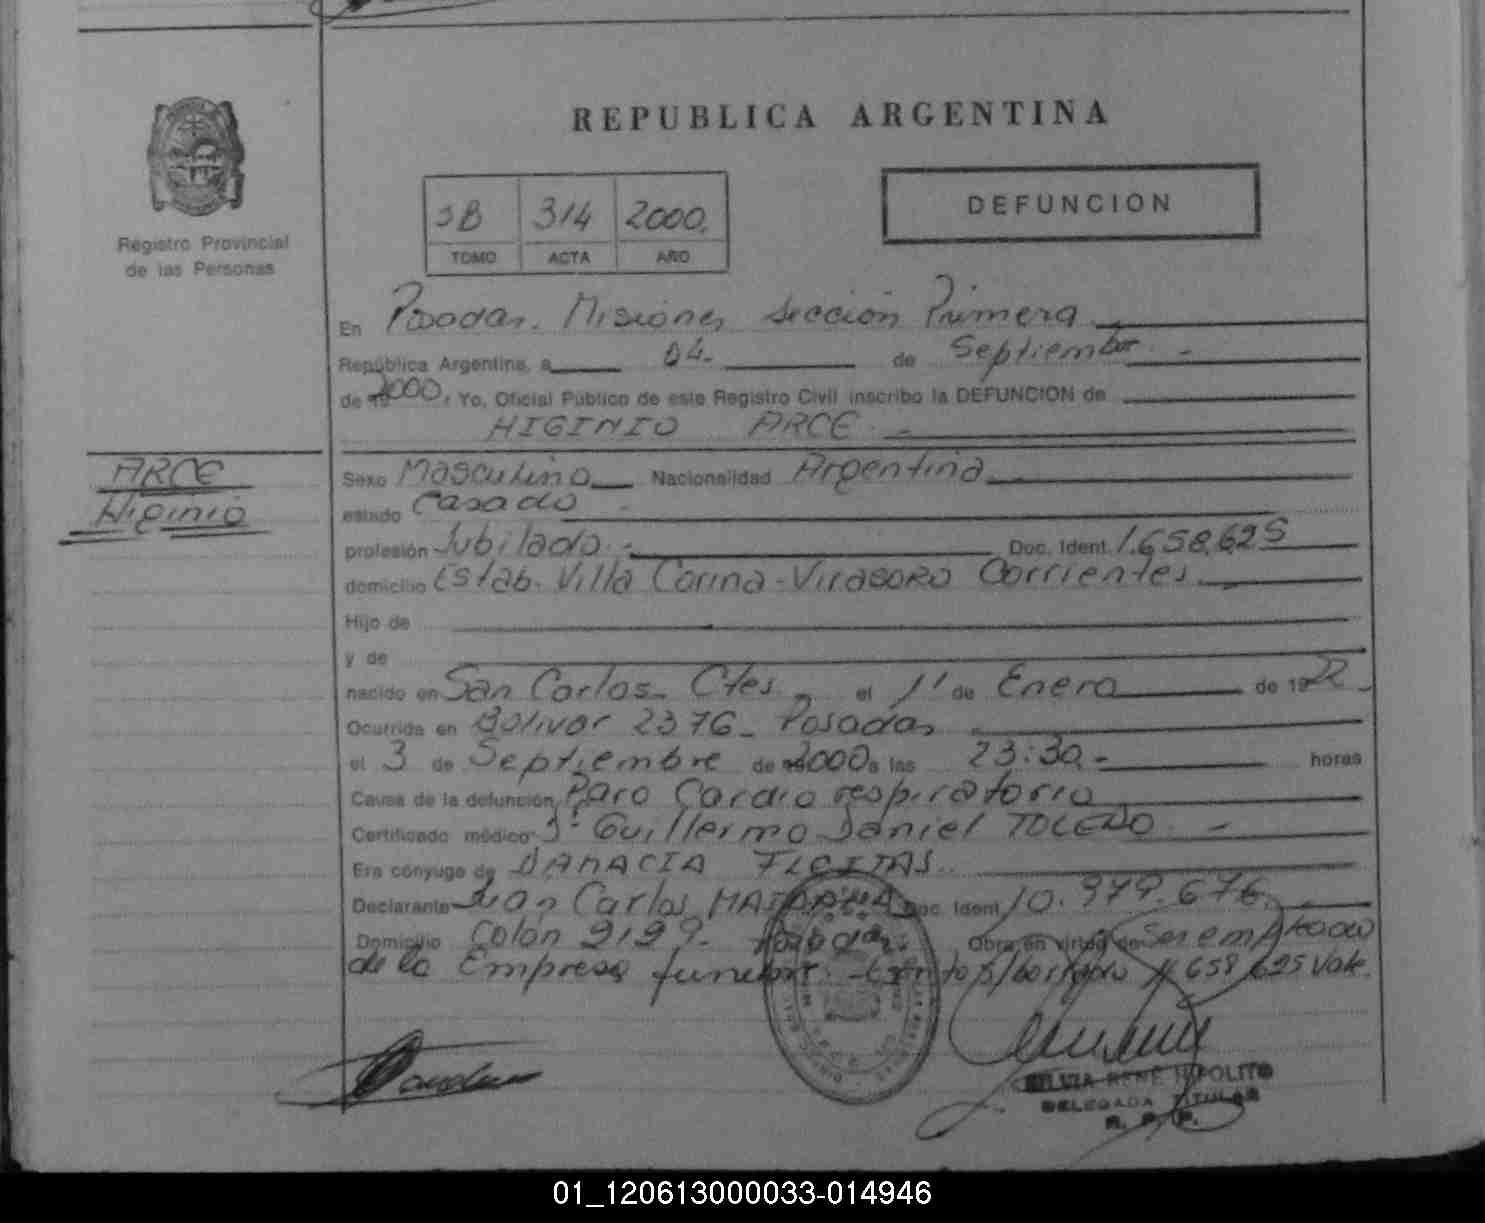 REPUBLICA ARGENTINA
Registro Provincial
de las Personas
314 2000.
TOMO ACTA AÑO
DEFUNCION
En Posadas. Misiones sección Primera
República Argentina, a 04.- de Septiembre.-
de 2000, Yo, Oficial Público de este Registro Civil inscribo la DEFUNCION de
HIGINIO ARCE.-
ARCE
Higinio
Sexo Masculino Nacionalidad Argentina
estado Casado
profesión Jubilado.- Doc. Ident. 1.658.625
domicilio Estab. Villa Corina-Virasoro Corrientes
Hijo de
y de
nacido en San Carlos- Ctes. el 1° de Enero de 1922
Ocurrida en Bolivar 2376- Posadas
el 3 de Septiembre de 2000 a las 23:30.- horas
Causa de la defunción Paro Cardio respiratorio
Certificado médico Guillermo Daniel TOLEDO.-
Era cónyuge de DAMACIA
Declarante Juan Carlos Doc. Ident. 10.979.676.
Domicilio Colón Posadas. Obra en virtud de Ser empleado
de la Empresa 658 625 Vale.
SILVIA RENE HIPOLITO
DELEGADA TITULAR
R. P. P.
01_120613000033-014946